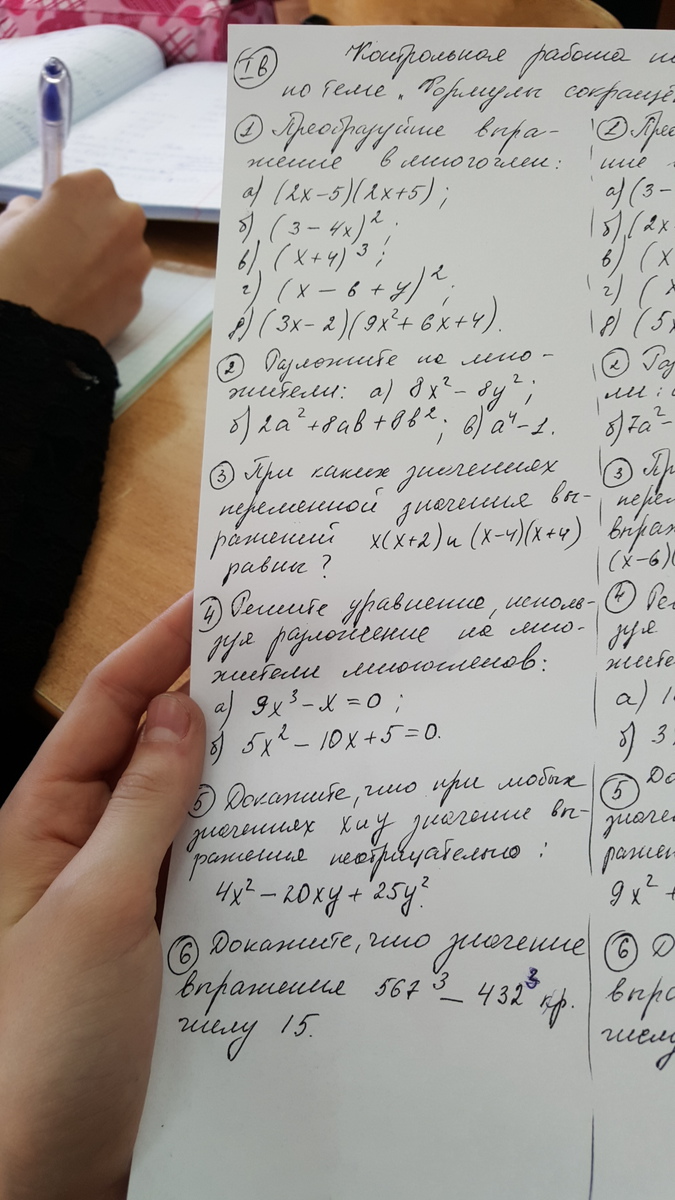 Iв Контрольная работа по
по теме „Формулы сокращё
① Преобразуйте выра-
жение в многочлен:
а) (2x-5)(2x+5);
б) (3-4x)²;
в) (x+4)³;
г) (x-в+y)²;
д) (3x-2)(9x²+6x+4).
② Разложите на мно-
жители: а) 8x²-8y²;
б) 2a²+8ab+8b²; в) a⁴-1.
③ При каких значениях
переменной значения вы-
ражений x(x+2) и (x-4)(x+4)
равны?
④ Решите уравнение, исполь-
зуя разложение на мно-
жители многочленов:
а) 9x³-x=0;
б) 5x²-10x+5=0.
⑤ Докажите, что при любых
значениях x и y значение вы-
ражения неотрицательно:
4x²-20xy+25y².
⑥ Докажите, что значение
выражения 567³-432³ кр.
числу 15.
① Прео
ние
а) (3-
б) (2x
в) (x
г) (x
д) (5x
② Раз
ли:
б) 7a²-
③ Пр
перем
выраж
(x-6)(
④ Реш
зуя
жите
а) 1
б) 3
⑤ До
значе
ражен
9x²+
⑥ Д
выра
числу